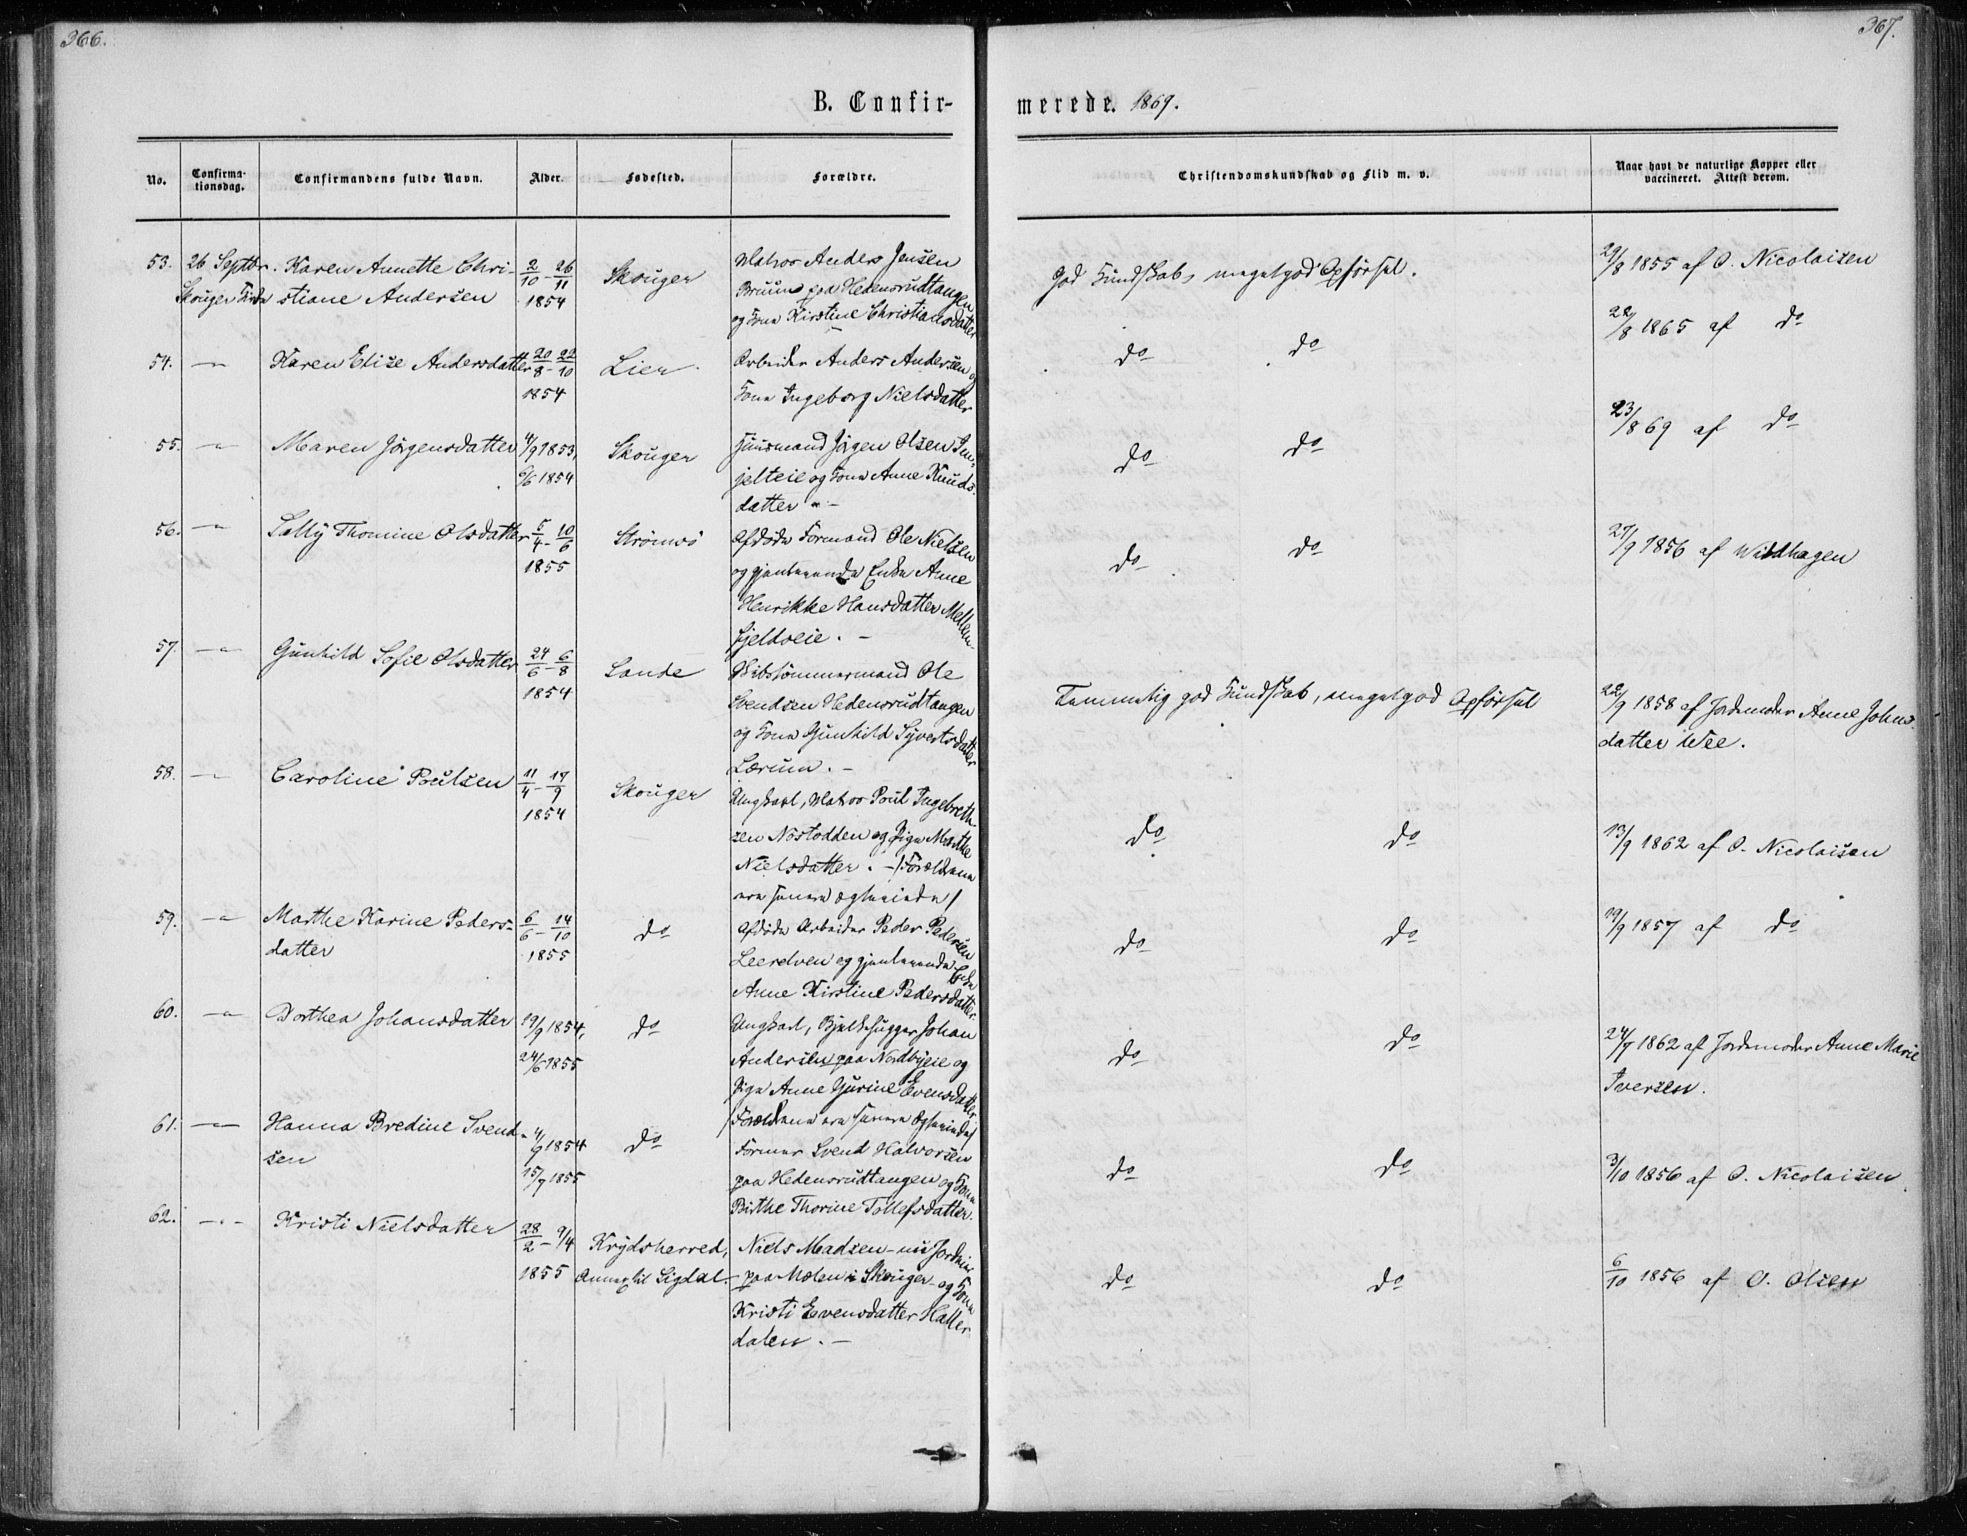 366.
367.
B. Confir-
merede. 1869.
No.
Confirma-
tionsdag.
Confirmandens fulde Navn.
Alder.
Fødested.
Forældre.
Christendomskundskab og Flid m. v.
Naar havt de naturlige Kopper eller
vaccineret. Attest derom.
53. 26 Septbr. Karen Annette Chri- 2/10 - 26/11 Skouger Matros Anders Jensen
Skouger stiane Andersen 1854 Bruun paa Hedensrudtangen
og Kona Kirstine Christiansdatter
God Kundskab, megetgod Opførsel. 29/8 1855 af O. Nicolaisen
54. -"- Karen Elise Andersdatter 20/8 - 22/10 Lier Arbeider Anders Andersen og
1854 Kona Ingeborg Nielsdatter
do do 22/8 1865 af do
55. -"- Maren Jørgensdatter 4/9 1853, Skouger Huusmand Jørgen Olsen
6/6 1854 og Kona Anne Knuds-
datter -
do do 23/8 69 af do
56. -"- Sally Thomine Olsdatter 5/4 - 10/6 Strømsø Afdøde Formand Ole Nielsen
1855 og gjenlevende Enke Anne
Henrikke Hansdatter Mellem-
fjeldseie. -
do do 27/9 1856 af Wildhagen
57. -"- Gunhild Sofie Olsdatter 24/6 - 6/8 Sande Skibstømmermand Ole
1854 Svendsen Hedensrudtangen
og Kona Gunhild Syvertsdatter
Lærum. -
Temmelig god Kundskab, megetgod Opførsel 22/9 1858 af Jordmoder Anne Johns-
datter Wee.
58. -"- Caroline Poulsen 11/4 - 17/9 Skouger Ungkarl, Matros Poul Ingebreth-
1854 sen Nøstodden og Pige Marthe
Nielsdatter. - /Forældrene
ere senere ægteviede/
do do 13/9 1862 af O. Nicolaisen
59. -"- Marthe Karine Peders- 6/6 - 14/10 do Afdøde Arbeider Peder Pedersen
datter 1855 Leerelven og gjenlevende Enke
Anne Kirstine Pedersdatter.
do do 19/9 1857 af do
60. -"- Dorthea Johansdatter 19/9 1854, do Ungkarl, Bjelkehugger Johan
24/6 1855 Andersen paa Nordbyeie og
Pige Anne Gurine Evensdatter
/Forældrene ere senere ægteviede/
do do 24/7 1862 af Jordmoder Anne Marie
Iversen.
61. -"- Hanna Bredine Svend- 4/9 1854 do Former Svend Halvorsen
sen 15/7 1855 paa Hedensrudtangen og Kona
Birthe Thorine Tollefsdatter.
do do 3/10 1856 af O. Nicolaisen
62. -"- Kristi Nielsdatter 28/2 - 9/4 Krydsherred, Niels Madsen - nu
1855 Annex til Sigdal. - paa Mælen i Skouger - og Kona
Kristi Evensdatter Haller-
dalen. -
do do 6/10 1856 af O. Olsen